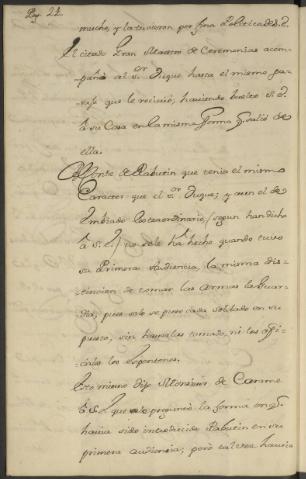 Pag. 22.
mucho, y la tuvieron por fina Politica de S. E.
El citado Gran Maestro de Ceremonias acom-
pañó al S.or Duque hasta el mismo pa-
rage que le recivió, haviendo buelto S. E.
à su Casa en la misma forma q. salió de
ella.
Al Conde de Rabutin que tenia el mismo
Caracter que el S.or Duque; y aun el de
Embiado Extraordinario, segun han dicho
à S. E. no se le ha hecho quando tuvo
su Primera Audiencia, la misma dis-
tincion de tomar las armas la Guar-
dia, pues solo se puso cada Soldado en su
puesto, sin haverlas tomado, ni los offi-
ciales los Espontones.
Esto mismo dijo Monsieur de
à S. E. que le preguntó la forma en q.
havia sido introducido Rabutin en su
primera audiencia; pero